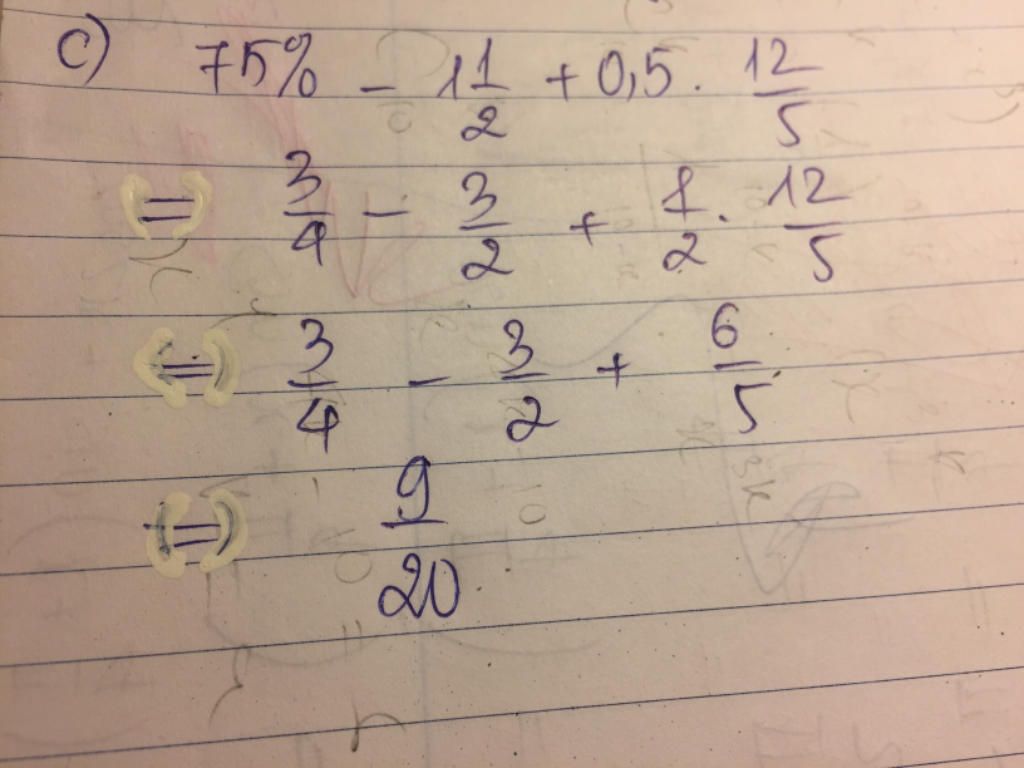 c) 75% - 1 1/2 + 0,5 . 12/5
= 3/4 - 3/2 + 1/2 . 12/5
= 3/4 - 3/2 + 6/5
= 9/20